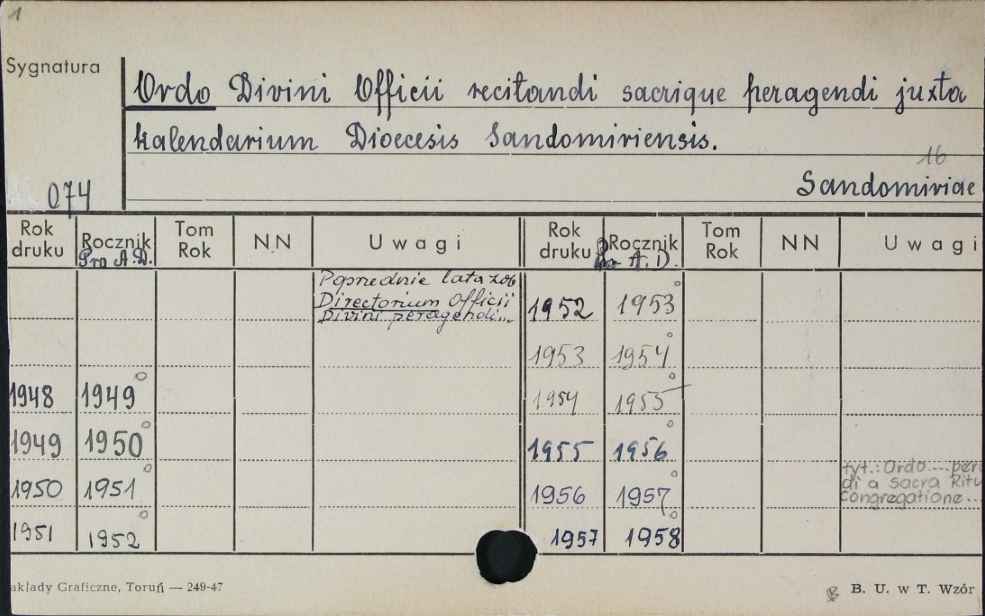 1
Sygnatura
Ordo Divini Officii recitandi sacrique peragendi juxta
kalendarium Dioecesis Sandomiriensis.
16
074
Sandomiriae
Rok druku Rocznik Pro A.D. Tom Rok NN Uwagi Rok druku Rocznik Pro A.D. Tom Rok NN Uwagi
Poprzednie lata zob
Directorium Officii
Divini peragendi...
1952 1953
1953 1954
1948 1949 1954 1955
1949 1950 1955 1956
1950 1951 1956 1957 tyt.: Ordo... per
di a Sacra Ritu
Congregatione...
1951 1952 1957 1958
akłady Graficzne, Toruń — 249-47
B. U. w T. Wzór